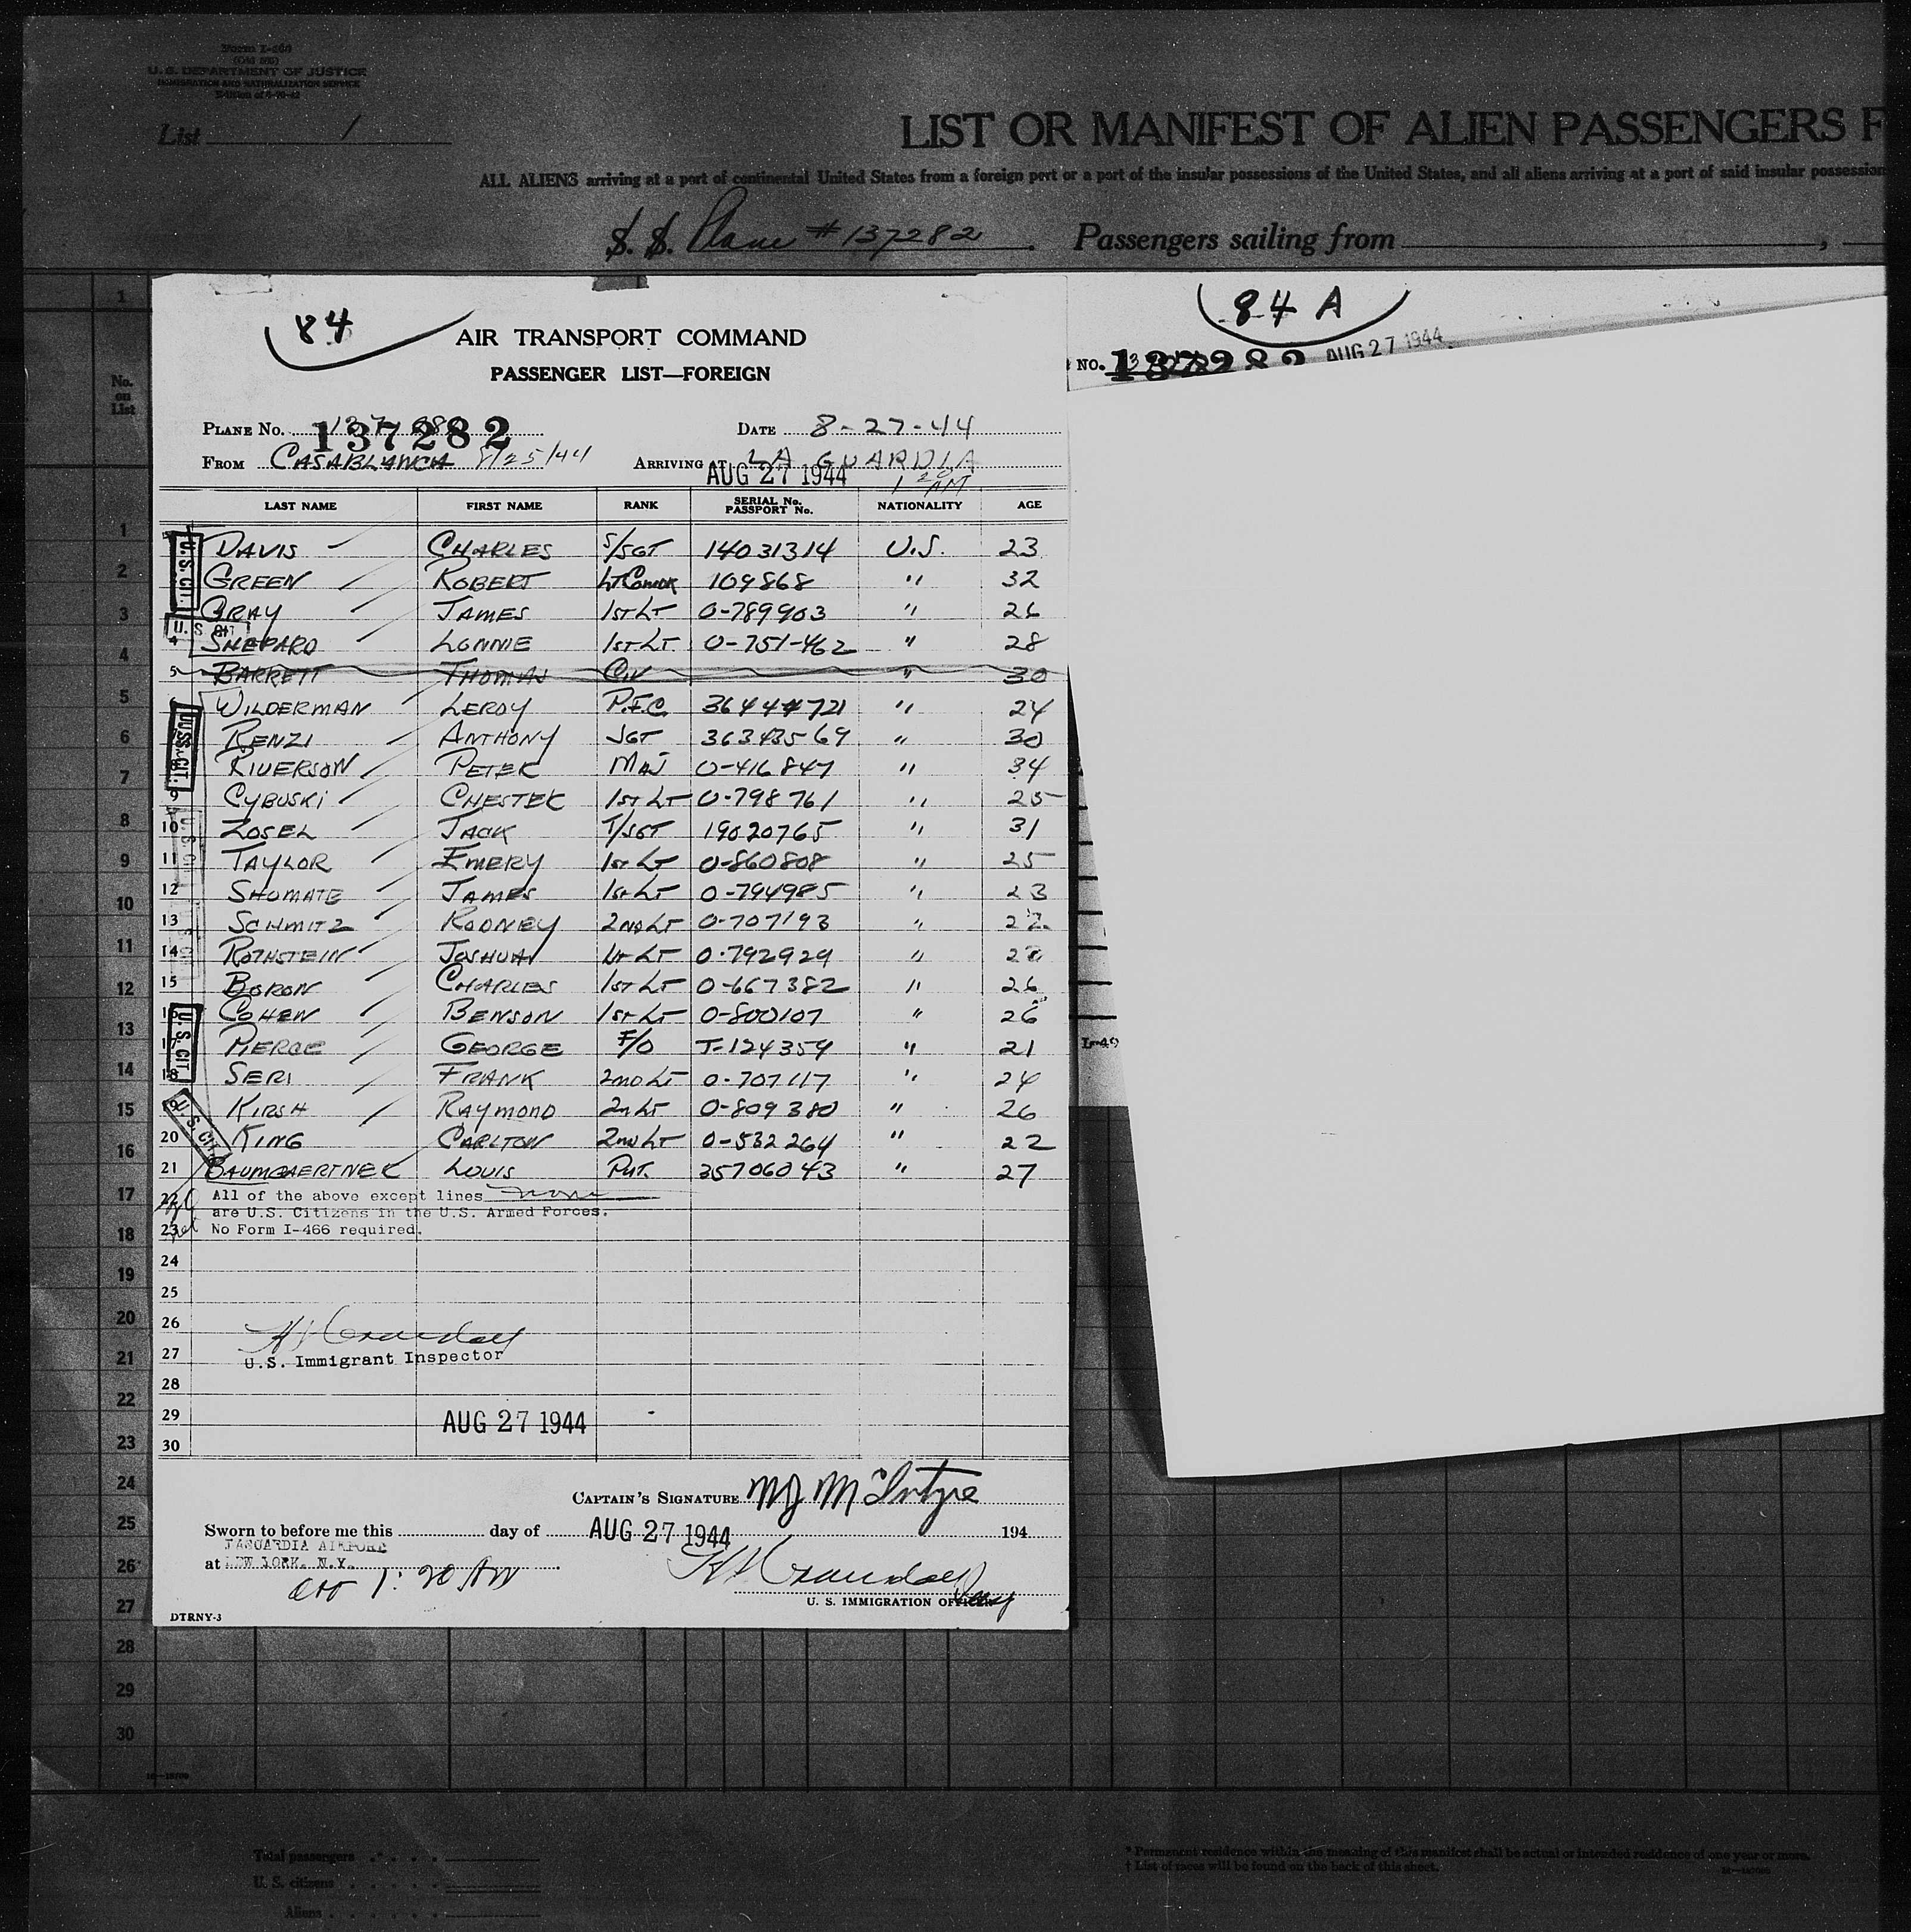 Form I-466
(Old 500)
U. S. DEPARTMENT OF JUSTICE
IMMIGRATION AND NATURALIZATION SERVICE
List 1
LIST OR MANIFEST OF ALIEN PASSENGERS F
ALL ALIENS arriving at a port of continental United States from a foreign port or a port of the insular possessions of the United States, and all aliens arriving at a port of said insular possession
S. S. Plane # 137282. Passengers sailing from ,
No. on List
84
84 A
AIR TRANSPORT COMMAND
PASSENGER LIST—FOREIGN
NO. 137282 AUG 27 1944
PLANE NO. 137282 DATE 8-27-44
FROM CASABLANCA 8/25/44 ARRIVING AT LA GUARDIA
AUG 27 1944 1 20 AM
LAST NAME FIRST NAME RANK SERIAL No. PASSPORT No. NATIONALITY AGE
DAVIS CHARLES S/SGT 14031314 U.S. 23
GREEN ROBERT LT COMDR 109868 " 32
GRAY JAMES 1ST LT 0-789903 " 26
4 SHEPARD LONNIE 1ST LT. 0-751-462 " 28
5 BARRETT THOMAS CIV " 30
WILDERMAN LEROY P.F.C. 36444721 " 24
RENZI ANTHONY SGT 36343569 " 30
RIVERSON PETER MAJ 0-416847 " 34
9 CYBUSKI CHESTER 1ST LT 0-798761 " 25
10 ZOSEL JACK T/SGT 19020765 " 31
11 TAYLOR EMERY 1ST LT 0-860808 " 25
12 SHUMATE JAMES 1ST LT 0-794985 " 23
13 SCHMITZ RODNEY 2ND LT 0-707193 " 22
14 ROTHSTEIN JOSHUA 1ST LT 0-792929 "
15 BORON CHARLES 1ST LT 0-667382 " 26
16 COHEN BENSON 1ST LT 0-800107 " 26
17 PIERCE GEORGE F/O T-124359 " 21
18 SERI FRANK 2ND LT 0-707117 " 24
19 KIRSH RAYMOND 2N LT 0-809380 " 26
20 KING CARLTON 2ND LT 0-532264 " 22
21 BAUMGAERTNER LOUIS PVT. 35706043 " 27
22 All of the above except lines none
are U.S. Citizens in the U.S. Armed Forces.
23 No Form I-466 required.
24
25
26 H Crandall
27 U.S. Immigrant Inspector
28
29 AUG 27 1944
30
U.S. CIT.
U. S. CIT
U.S. CIT.
U.S. CIT.
U.S. CIT.
CAPTAIN'S SIGNATURE MJ McIntyre
Sworn to before me this day of AUG 27 1944 194
LAGUARDIA AIRPORT
at NEW YORK, N.Y.
1:20 AM
H Crandall
U. S. IMMIGRATION OFFICER
DTRNY-3
1
2
3
4
5
6
7
8
9
10
11
12
13
14
15
16
17
18
19
20
21
22
23
24
25
26
27
28
29
30
I-49
Total passengers
U. S. citizens
Aliens
* Permanent residence within the meaning of this manifest shall be actual or intended residence of one year or more.
† List of races will be found on the back of this sheet.